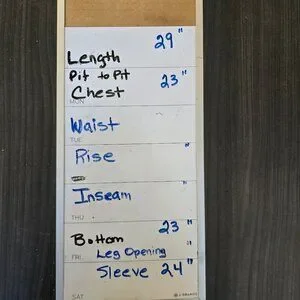 Length 29"
Pit to Pit
Chest 23"
MON
Waist
TUE
Rise "
Inseam "
THU
Bottom 23"
FRI Leg Opening "
Sleeve 24"
SAT